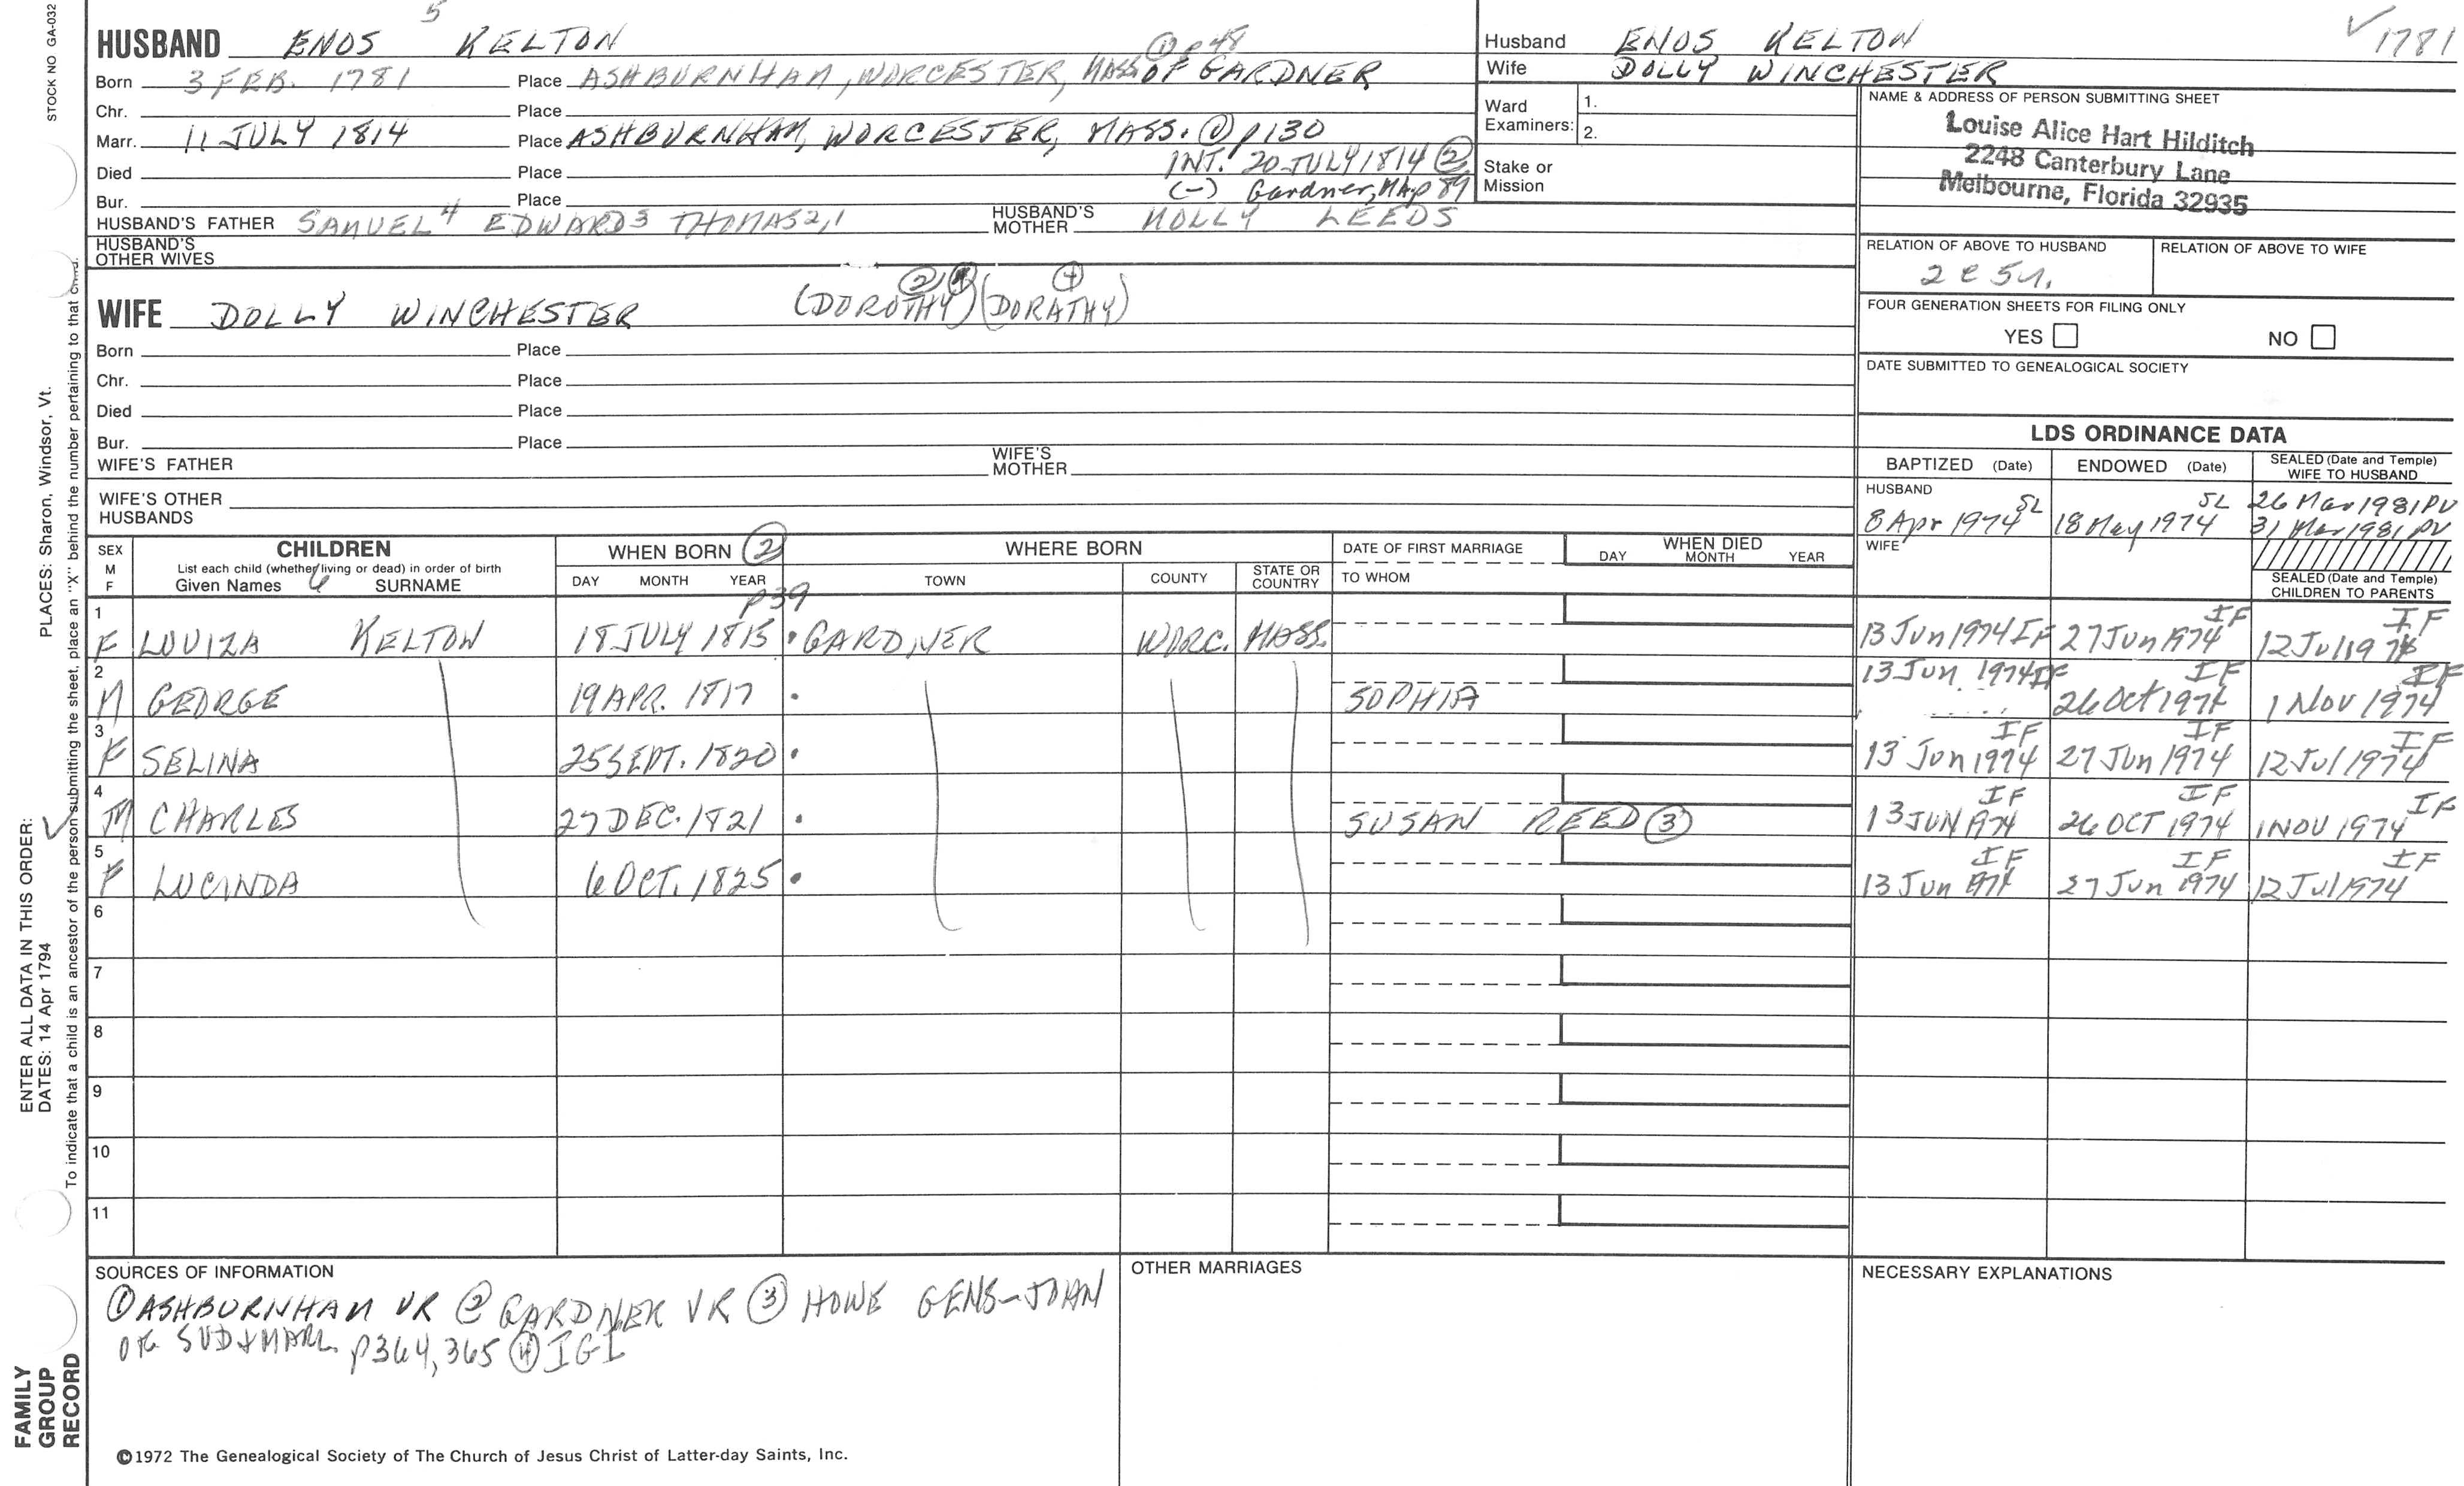 STOCK NO GA-032
5
HUSBAND ENOS KELTON
① p48
Born 3 FEB. 1781 Place ASHBURNHAM, WORCESTER, MASS OF GARDNER
Chr. Place
Marr. 11 JULY 1814 Place ASHBURNHAM, WORCESTER, MASS. ① p130
Died Place INT. 20 JULY 1814 ②
Bur. Place (-) Gardner, MA p 87
HUSBAND'S FATHER SAMUEL4 EDWARD3 THOMAS2,1 HUSBAND'S MOTHER MOLLY LEEDS
HUSBAND'S OTHER WIVES
Husband ENOS KELTON
✓ 1781
Wife DOLLY WINCHESTER
Ward Examiners: 1.
2.
Stake or Mission
NAME & ADDRESS OF PERSON SUBMITTING SHEET
Louise Alice Hart Hilditch
2248 Canterbury Lane
Melbourne, Florida 32935
RELATION OF ABOVE TO HUSBAND RELATION OF ABOVE TO WIFE
2 c 5 r.
FOUR GENERATION SHEETS FOR FILING ONLY
YES NO
DATE SUBMITTED TO GENEALOGICAL SOCIETY
② ④
WIFE DOLLY WINCHESTER (DOROTHY) (DORATHY)
Born Place
Chr. Place
Died Place
Bur. Place
WIFE'S FATHER WIFE'S MOTHER
WIFE'S OTHER HUSBANDS
LDS ORDINANCE DATA
BAPTIZED (Date) ENDOWED (Date) SEALED (Date and Temple) WIFE TO HUSBAND
HUSBAND 8 Apr 1974 SL 18 May 1974 SL 26 Mar 1981 PV
31 Mar 1981 PV
WIFE
SEALED (Date and Temple) CHILDREN TO PARENTS
SEX M F CHILDREN WHEN BORN ② WHERE BORN DATE OF FIRST MARRIAGE WHEN DIED
List each child (whether living or dead) in order of birth
Given Names 6 SURNAME DAY MONTH YEAR TOWN COUNTY STATE OR COUNTRY TO WHOM DAY MONTH YEAR
p39
1 F LOUIZA KELTON 18 JULY 1815 • GARDNER WORC. MASS. 13 Jun 1974 IF 27 Jun 1974 IF 12 Jul 1974 IF
2 M GEORGE 19 APR. 1817 • SOPHIA 13 Jun 1974 IF 26 Oct 1974 IF 1 Nov 1974 IF
3 F SELINA 25 SEPT. 1820 • 13 Jun 1974 IF 27 Jun 1974 IF 12 Jul 1974 IF
✓ 4 M CHARLES 27 DEC. 1821 • SUSAN REED ③ 13 JUN 1974 IF 26 OCT 1974 IF 1 NOV 1974 IF
5 F LUCINDA 6 OCT. 1825 • 13 Jun 1974 IF 27 Jun 1974 IF 12 Jul 1974 IF
6
7
8
9
10
11
SOURCES OF INFORMATION
① ASHBURNHAM VR ② GARDNER VR ③ HOWE GENS-JOHN
OF SUD & MARL. p364, 365 ④ IGI
OTHER MARRIAGES
NECESSARY EXPLANATIONS
©1972 The Genealogical Society of The Church of Jesus Christ of Latter-day Saints, Inc.
FAMILY
GROUP
RECORD
ENTER ALL DATA IN THIS ORDER:
DATES: 14 Apr 1794
PLACES: Sharon, Windsor, Vt.
To indicate that a child is an ancestor of the person submitting the sheet, place an "X" behind the number pertaining to that child.